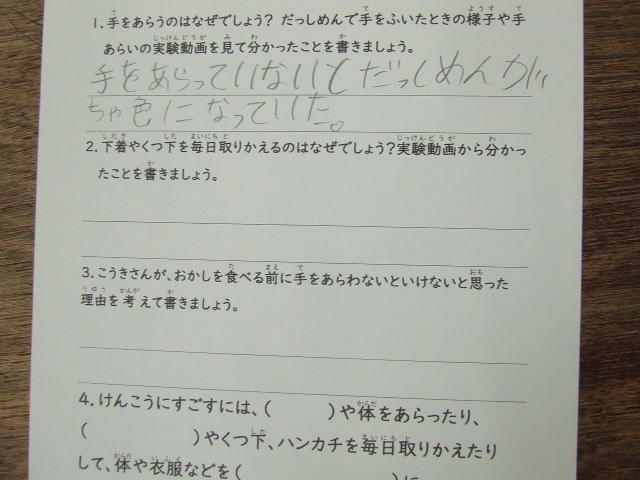 1.手をあらうのはなぜでしょう？ だっしめんで手をふいたときの様子や手
あらいの実験動画を見て分かったことを書きましょう。
手をあらっていないとだっしめんが
ちゃ色になっていた。
2.下着やくつ下を毎日取りかえるのはなぜでしょう？実験動画から分かっ
たことを書きましょう。
3.こうきさんが、おかしを食べる前に手をあらわないといけないと思った
理由を考えて書きましょう。
4.けんこうにすごすには、( )や体をあらったり、
( )やくつ下、ハンカチを毎日取りかえたり
して、体や衣服などを( )に